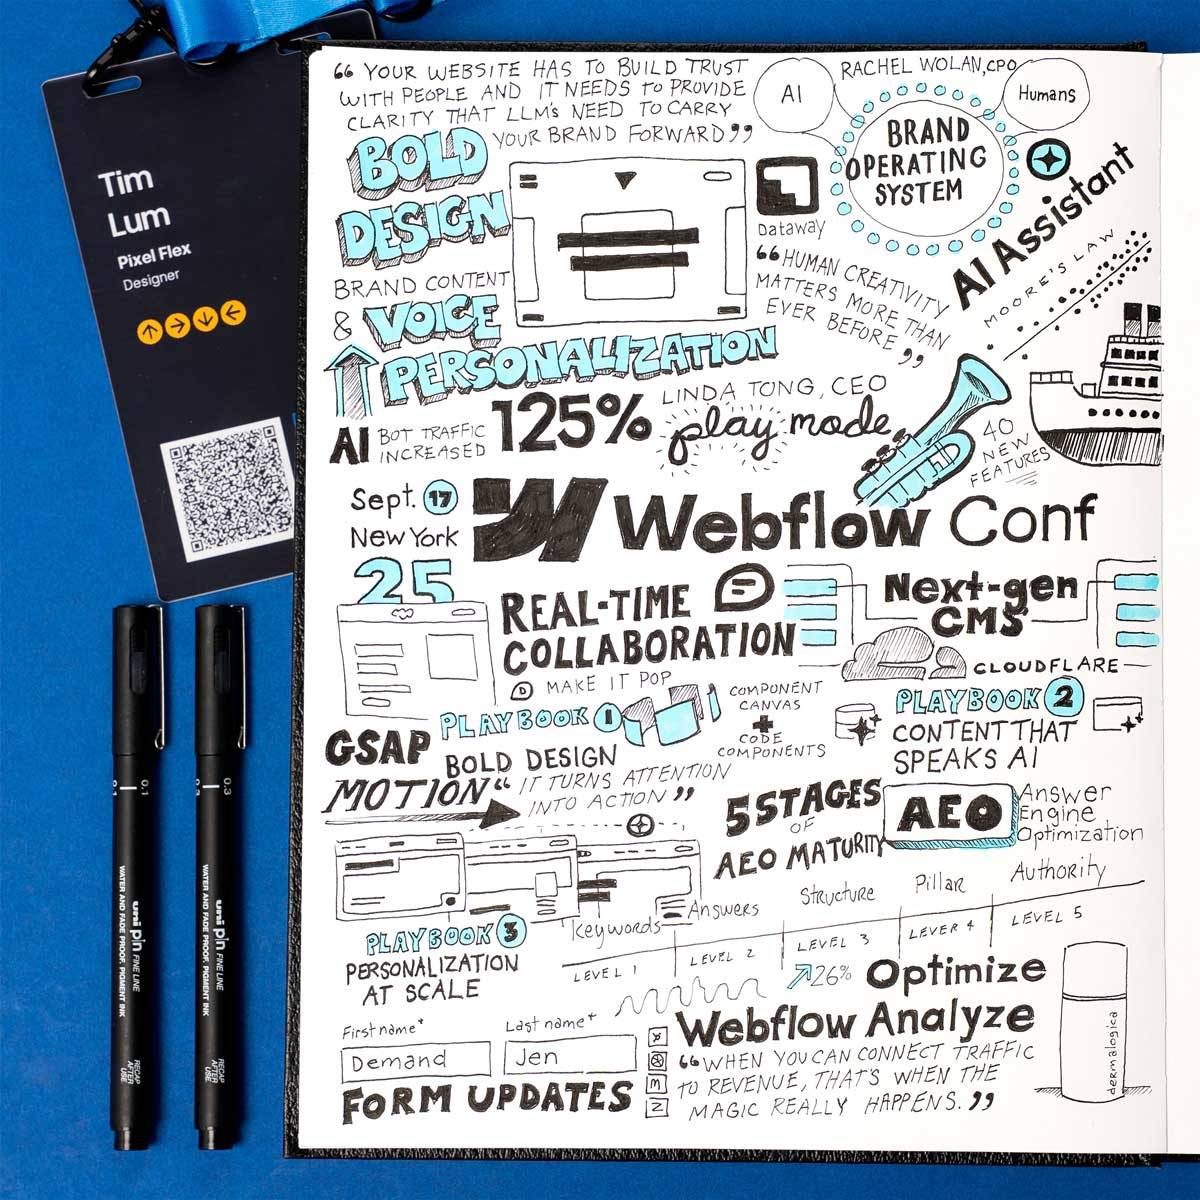 Tim
Lum
Pixel Flex
Designer
“ YOUR WEBSITE HAS TO BUILD TRUST
WITH PEOPLE AND IT NEEDS TO PROVIDE
CLARITY THAT LLM's NEED TO CARRY
YOUR BRAND FORWARD ”
AI
RACHEL WOLAN, CPO
Humans
BRAND
OPERATING
SYSTEM
BOLD
DESIGN
Dataway
AI Assistant
MOORE'S LAW
“ HUMAN CREATIVITY
MATTERS MORE THAN
EVER BEFORE ”
BRAND CONTENT
& VOICE
PERSONALIZATION
AI BOT TRAFFIC
INCREASED
125%
LINDA TONG, CEO
play mode
40
NEW
FEATURES
Sept. 17
New York
25
Webflow Conf
REAL-TIME
COLLABORATION
Next-gen
CMS
CLOUDFLARE
D MAKE IT POP
PLAYBOOK 1
BOLD DESIGN
COMPONENT
CANVAS
+
CODE
COMPONENTS
PLAYBOOK 2
CONTENT THAT
SPEAKS AI
GSAP
MOTION
“ IT TURNS ATTENTION
INTO ACTION ”
5 STAGES
OF
AEO MATURITY
AEO
Answer
Engine
Optimization
Keywords
Answers
Structure
Pillar
Authority
LEVEL 1
LEVEL 2
LEVEL 3
LEVER 4
LEVEL 5
PLAYBOOK 3
PERSONALIZATION
AT SCALE
26%
Optimize
Webflow Analyze
“ WHEN YOU CAN CONNECT TRAFFIC
TO REVENUE, THAT'S WHEN THE
MAGIC REALLY HAPPENS. ”
First name*
Last name*
Demand
Jen
FORM UPDATES
dermalogica
0.1
uni pin FINE LINE
WATER AND FADE PROOF, PIGMENT INK
RECAP
AFTER
USE
0.3
uni pin FINE LINE
WATER AND FADE PROOF, PIGMENT INK
RECAP
AFTER
USE